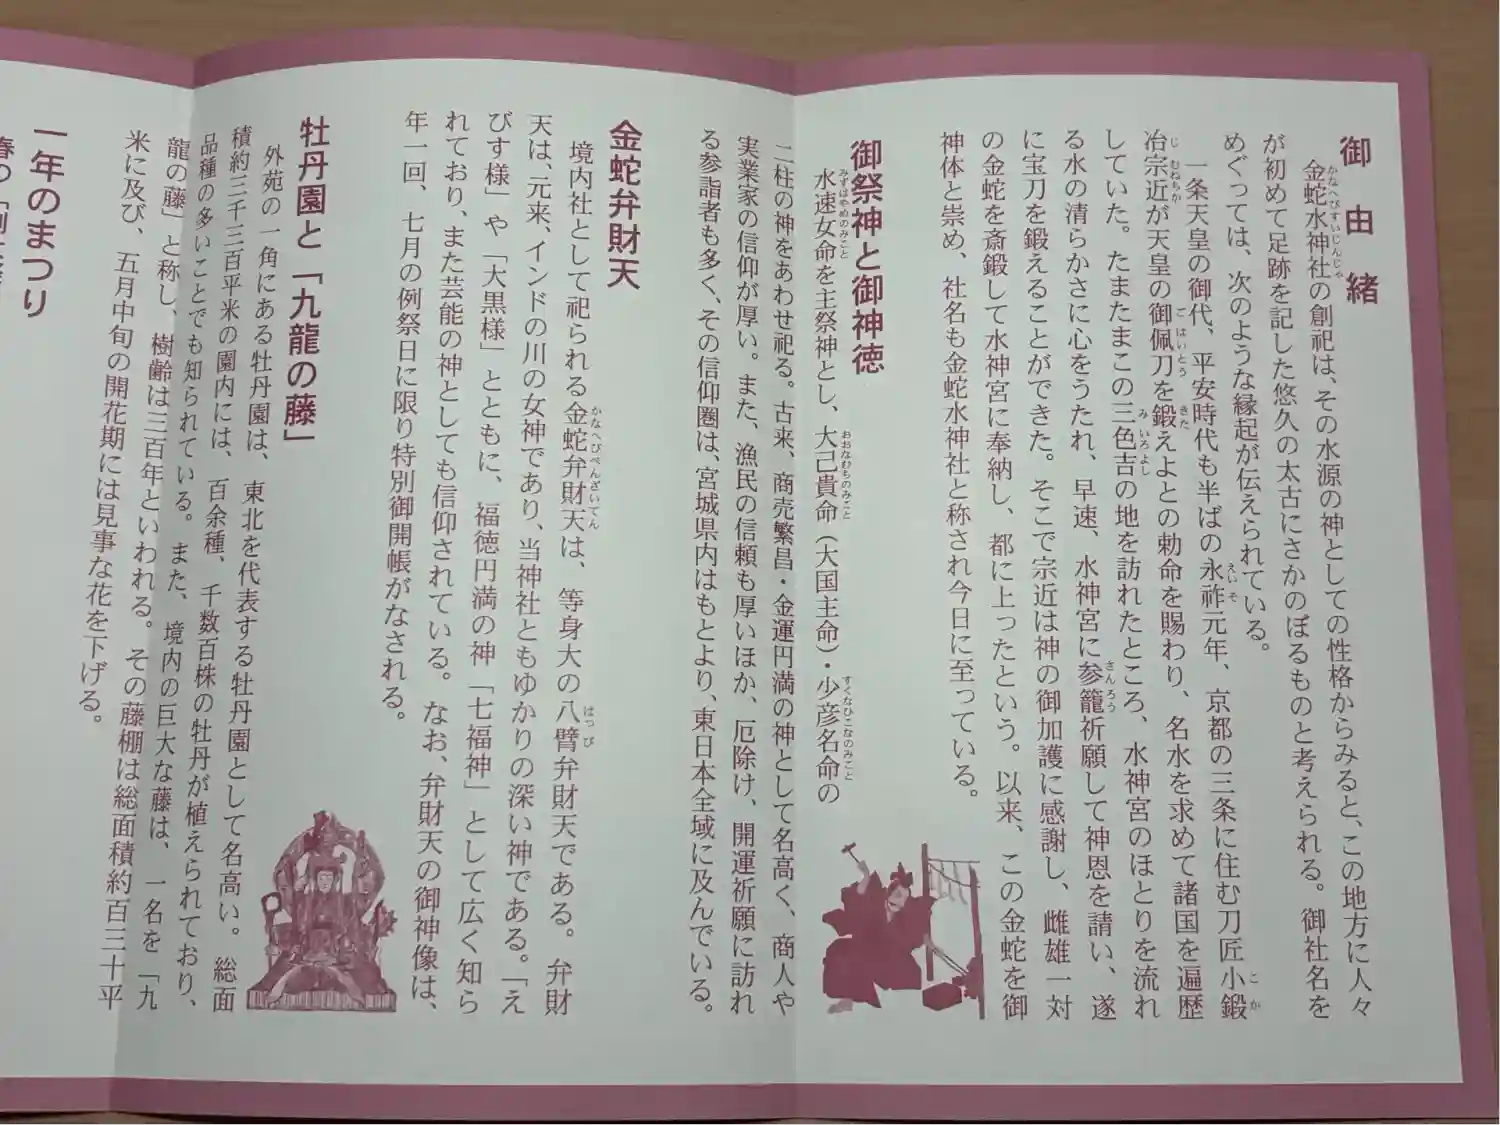 御由緒
金蛇水神社の創祀は、その水源の神としての性格からみると、この地方に人々
が初めて足跡を記した悠久の太古にさかのぼるものと考えられる。御社名を
めぐっては、次のような縁起が伝えられている。
一条天皇の御代、平安時代も半ばの永祚元年、京都の三条に住む刀匠小鍛
冶宗近が天皇の御佩刀を鍛えよとの勅命を賜わり、名水を求めて諸国を遍歴
していた。たまたまこの三色吉の地を訪れたところ、水神宮のほとりを流れ
る水の清らかさに心をうたれ、早速、水神宮に参籠祈願して神恩を請い、遂
に宝刀を鍛えることができた。そこで宗近は神の御加護に感謝し、雌雄一対
の金蛇を斎鍛して水神宮に奉納し、都に上ったという。以来、この金蛇を御
神体と崇め、社名も金蛇水神社と称され今日に至っている。
御祭神と御神徳
水速女命を主祭神とし、大己貴命（大国主命）・少彦名命の
二柱の神をあわせ祀る。古来、商売繁昌・金運円満の神として名高く、商人や
実業家の信仰が厚い。また、漁民の信頼も厚いほか、厄除け、開運祈願に訪れ
る参詣者も多く、その信仰圏は、宮城県内はもとより、東日本全域に及んでいる。
金蛇弁財天
境内社として祀られる金蛇弁財天は、等身大の八臂弁財天である。弁財
天は、元来、インドの川の女神であり、当神社ともゆかりの深い神である。「え
びす様」や「大黒様」とともに、福徳円満の神「七福神」として広く知ら
れており、また芸能の神としても信仰されている。なお、弁財天の御神像は、
年一回、七月の例祭日に限り特別御開帳がなされる。
牡丹園と「九龍の藤」
外苑の一角にある牡丹園は、東北を代表する牡丹園として名高い。総面
積約三千三百平米の園内には、百余種、千数百株の牡丹が植えられており、
品種の多いことでも知られている。また、境内の巨大な藤は、一名を「九
龍の藤」と称し、樹齢は三百年といわれる。その藤棚は総面積約百三十平
米に及び、五月中旬の開花期には見事な花を下げる。
一年のまつり
春の「例